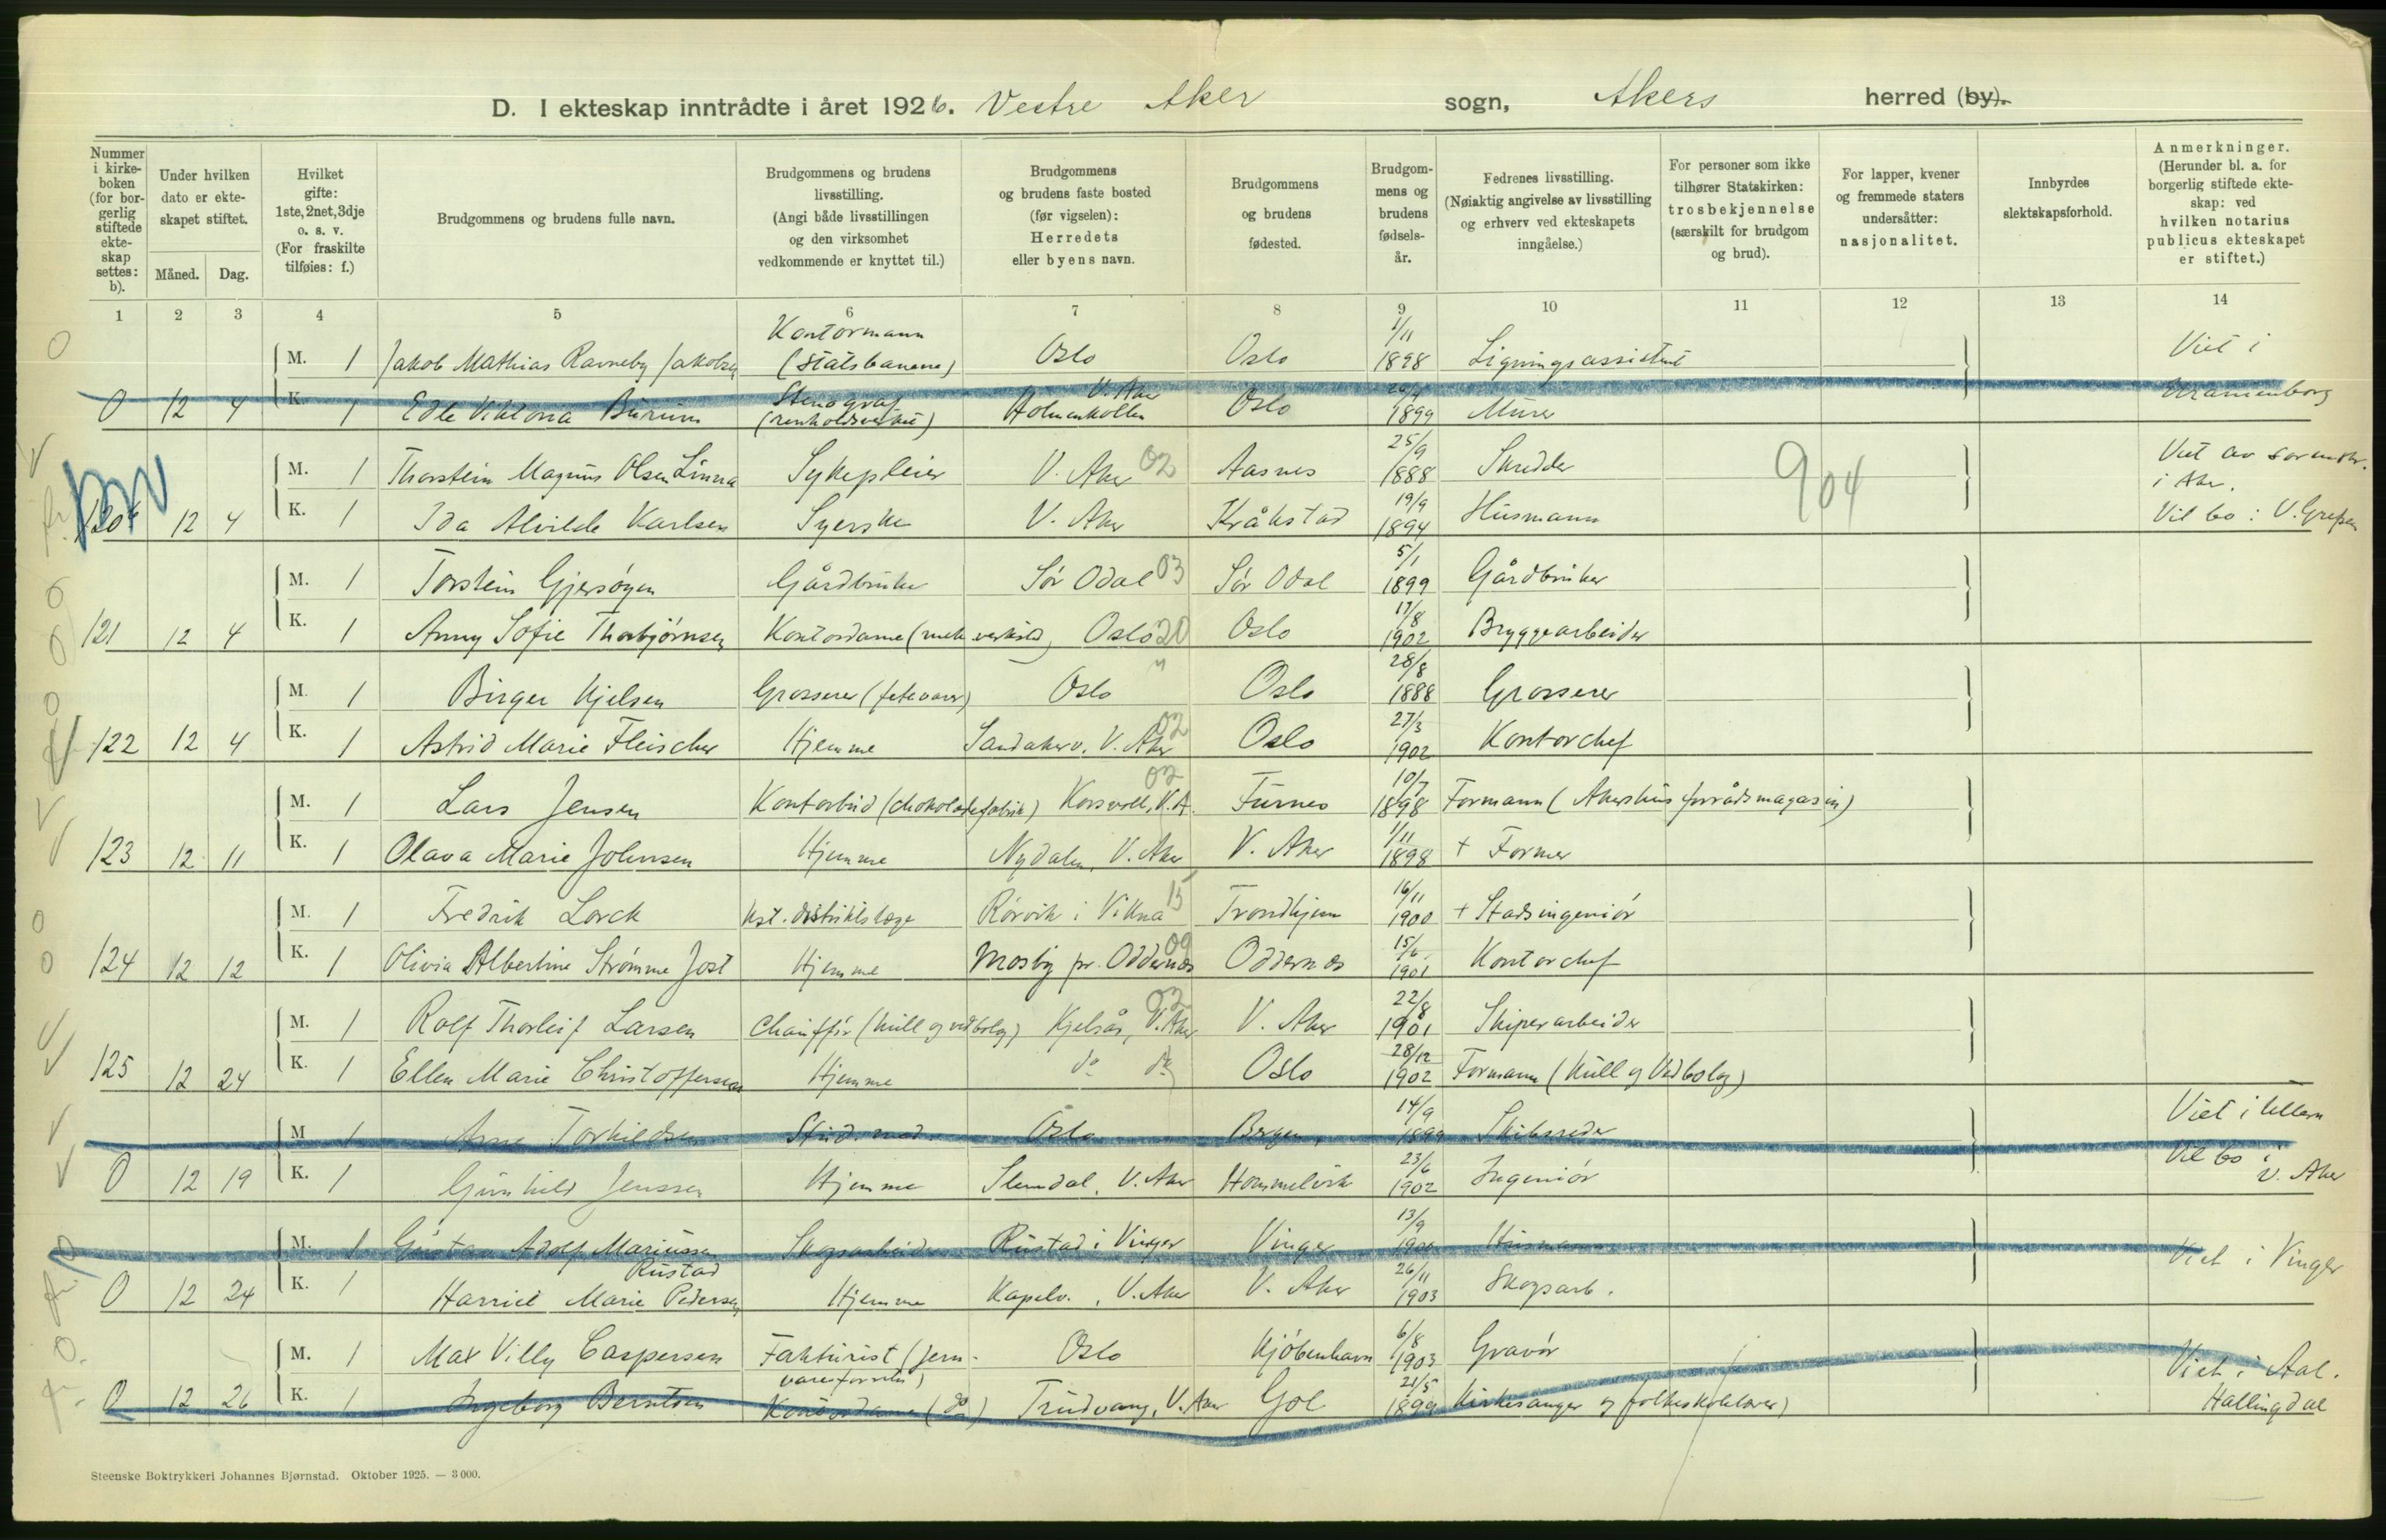 D. I ekteskap inntrådte i året 1926. Vestre Aker sogn, Akers herred (by).
Nummer i kirkeboken (for borgerlig stiftede ekteskap settes: b).
Under hvilken dato er ekteskapet stiftet.
Måned.
Dag.
Hvilket gifte: 1ste, 2net, 3dje o. s. v. (For fraskilte tilføies: f.)
Brudgommens og brudens fulle navn.
Brudgommens og brudens livsstilling. (Angi både livsstillingen og den virksomhet vedkommende er knyttet til.)
Brudgommens og brudens faste bosted (før vigselen): Herredets eller byens navn.
Brudgommens og brudens fødested.
Brudgommens og brudens fødselsår.
Fedrenes livsstilling. (Nøiaktig angivelse av livsstilling og erhverv ved ekteskapets inngåelse.)
For personer som ikke tilhører Statskirken: trosbekjennelse (særskilt for brudgom og brud).
For lapper, kvener og fremmede staters undersåtter: nasjonalitet.
Innbyrdes slektskapsforhold.
Anmerkninger. (Herunder bl. a. for borgerlig stiftede ekteskap: ved hvilken notarius publicus ekteskapet er stiftet.)
1 2 3 4 5 6 7 8 9 10 11 12 13 14
M. 1 Jakob Mathias Ravneby Jakobsen Kontormann (Statsbanene) Oslo Oslo 1/11 1898 Ligningsassistent Viet i
0 12 4 K. 1 Edle Viktoria Burum Stenograf Holmenkollen V. Aker Oslo 1899 Murer Uranienborg
M. 1 Thorstein Magnus Olsen Linna Sykepleier V. Aker 02 Aasnes 25/9 1888 Skredder 904 Viet av sorenskr. i Aker.
120 12 4 K. 1 Ida Alvilde Karlsen Syerske V. Aker Kråkstad 19/9 1894 Husmann Vil bo: V. Grefsen
M. 1 Torstein Gjersøyen Gårdbruker Sør Odal 03 Sør Odal 5/1 1899 Gårdbruker
121 12 4 K. 1 Anny Sofie Thorbjørnsen Kontordame (mek. verksted) Oslo 20 Oslo 17/8 1902 Bryggearbeider
M. 1 Birger Kjelsen Grosserer (fetevarer) Oslo Oslo 28/8 1888 Grosserer
122 12 4 K. 1 Astrid Marie Fleischer Hjemme Sandakerv. V. Aker 02 Oslo 27/3 1902 Kontorchef
M. 1 Lars Jensen Kontorbud (chokoladefabrik) Korsvoll, V. A. 02 Furnes 10/7 1898 Formann (Akershus forrådsmagasin)
123 12 11 K. 1 Olava Marie Johnsen Hjemme Nydalen, V. Aker V. Aker 1/11 1898 + Former
M. 1 Fredrik Lorck kst. distriktslæge Rørvik i Vikna 15 Trondhjem 16/11 1900 + Stadsingeniør
124 12 12 K. 1 Olivia Albertine Strømme Jost Hjemme Mosby pr. Oddernes 09 Oddernes 15/6 1901 Kontorchef
M. 1 Rolf Thorleif Larsen Chauffør (kull og vedbolag) Kjelsås, V. Aker 02 V. Aker 22/8 1901 Skiperarbeider
125 12 24 K. 1 Ellen Marie Christoffersen Hjemme do do Oslo 28/12 1902 Formann (Kull og Vedbolag)
M 1 Arne Torkildsen Stud. med. Oslo Bergen 14/9 1899 Skibsreder Viet i Ullern
0 12 19 K. 1 Gunhild Jenssen Hjemme Slemdal, V. Aker Hommelvik 23/6 1902 Ingeniør Vil bo i V. Aker
M. 1 Gustav Adolf Mariussen Rustad Skogsarbeider Rustad i Vinger Vinger 13/9 Husmann Viet i Vinger
0 12 24 K. 1 Harriet Marie Pedersen Hjemme Kapelv., V. Aker V. Aker 26/11 1903 Skogsarb.
M. 1 Max Villy Caspersen Fakturist (jernvareforretn.) Oslo Kjøbenhavn 6/8 1903 Gravør Viet i Aal.
0 12 26 K. 1 Ingeborg Berntsen Kontordame (do) Trudvang, V. Aker Gol 21/5 1899 Kirkesanger og folkeskolelærer) Hallingdal
Steenske Boktrykkeri Johannes Bjørnstad. Oktober 1925. — 3 000.